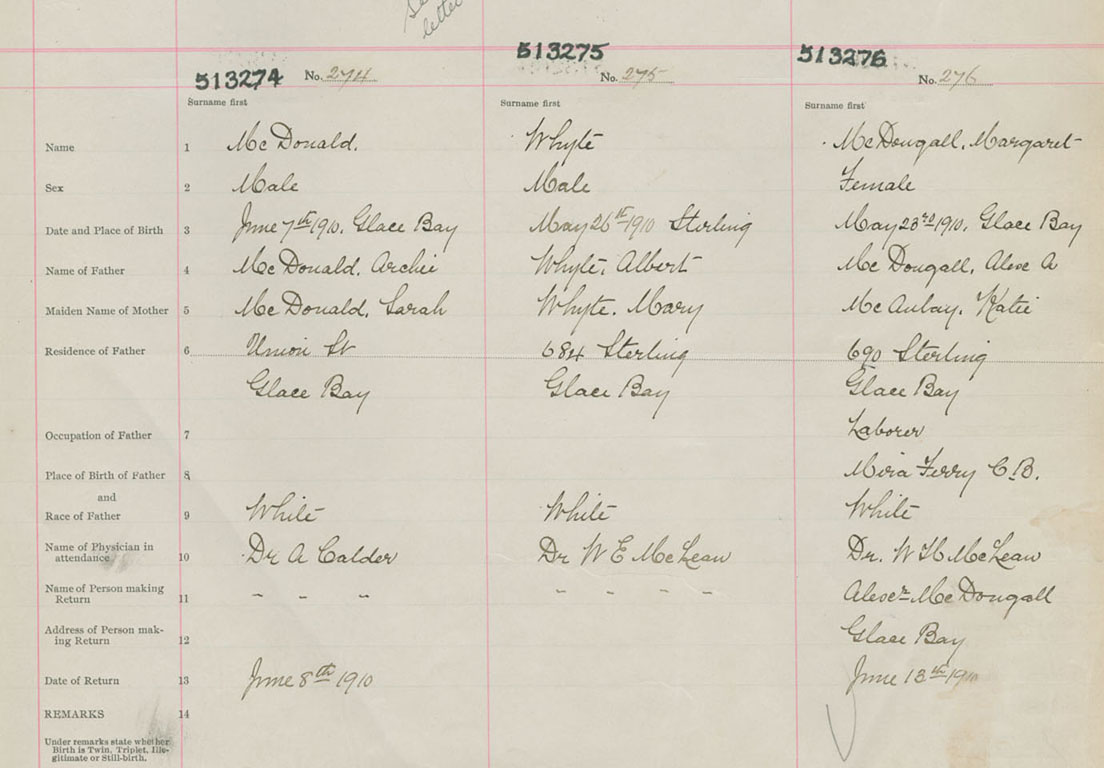 letter
513274 No. 274
513275 No. 275
513276 No. 276
Surname first Surname first Surname first
Name 1 McDonald. Whyte McDougall, Margaret
Sex 2 Male Male Female
Date and Place of Birth 3 June 7th 1910. Glace Bay May 26th 1910 Sterling May 23rd 1910, Glace Bay
Name of Father 4 McDonald, Archie Whyte, Albert McDougall, Alex A
Maiden Name of Mother 5 McDonald, Sarah Whyte. Mary McAulay, Katie
Residence of Father 6 Union St 684 Sterling 690 Sterling
Glace Bay Glace Bay Glace Bay
Occupation of Father 7 Laborer
Place of Birth of Father 8 Mira Ferry C.B.
and
Race of Father 9 White White White
Name of Physician in
attendance 10 Dr A Calder Dr W E McLean Dr. W H McLean
Name of Person making
Return 11 - - - - - - - Alexr McDougall
Address of Person mak-
ing Return 12 Glace Bay
Date of Return 13 June 8th 1910 June 13th 1910
REMARKS 14
Under remarks state whether
Birth is Twin, Triplet, Ille-
gitimate or Still-birth.